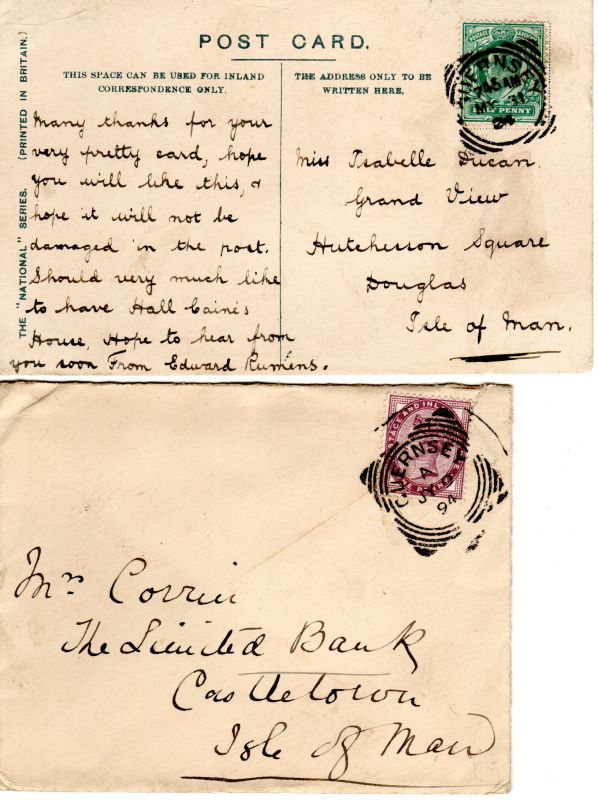 POST CARD.
THIS SPACE CAN BE USED FOR INLAND
CORRESPONDENCE ONLY.
THE ADDRESS ONLY TO BE
WRITTEN HERE.
THE "NATIONAL" SERIES. (PRINTED IN BRITAIN.)
Many thanks for your
very pretty card, hope
you will like this, &
hope it will not be
damaged in the post.
Should very much like
to have Hall Caine's
House, Hope to hear from
you soon From Edward Rumens.
Miss Isabelle Ducan.
Grand View
Hutchesson Square
Douglas
Isle of Man.
GUERNSEY
745 AM
HALF PENNY
GUERNSEY
A
JY
94
Mrs Corrin
The Limited Bank
Castletown
Isle of Man